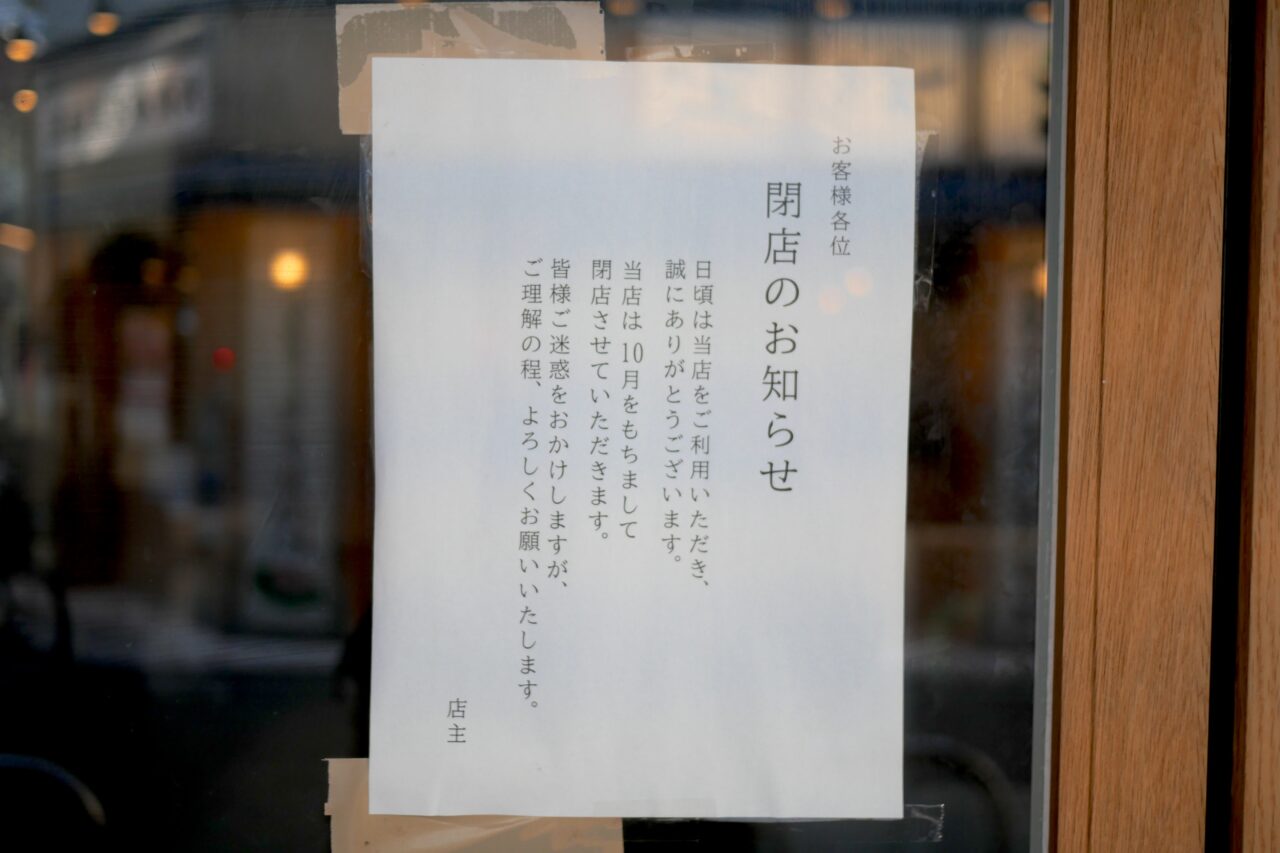 お客様各位
閉店のお知らせ
日頃は当店をご利用いただき、
誠にありがとうございます。
当店は10月をもちまして
閉店させていただきます。
皆様ご迷惑をおかけしますが、
ご理解の程、よろしくお願いいたします。
店主